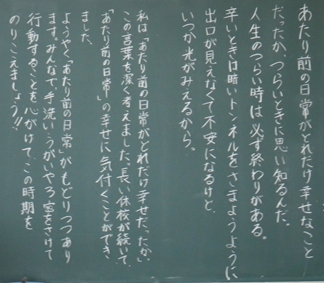 あたり前の日常がどれだけ幸せなこと
だったか、つらいときに思い知るんだ。
人生のつらい時は必ず終わりがある。
辛いときは暗いトンネルをさまようように、
出口が見えなくて不安になるけど、
いつか光がみえるから。
私は「あたり前の日常がどれだけ幸せだったか」
この言葉を深く考えました。長い休校が続いて、
「あたり前の日常」の幸せに気付くことができ
ました。
ようやく「あたり前の日常」がもどりつつあり
ます。みんなで手洗い・うがいやろ密をさけて
行動することを心がけて、この時期を
のりこえましょう!!